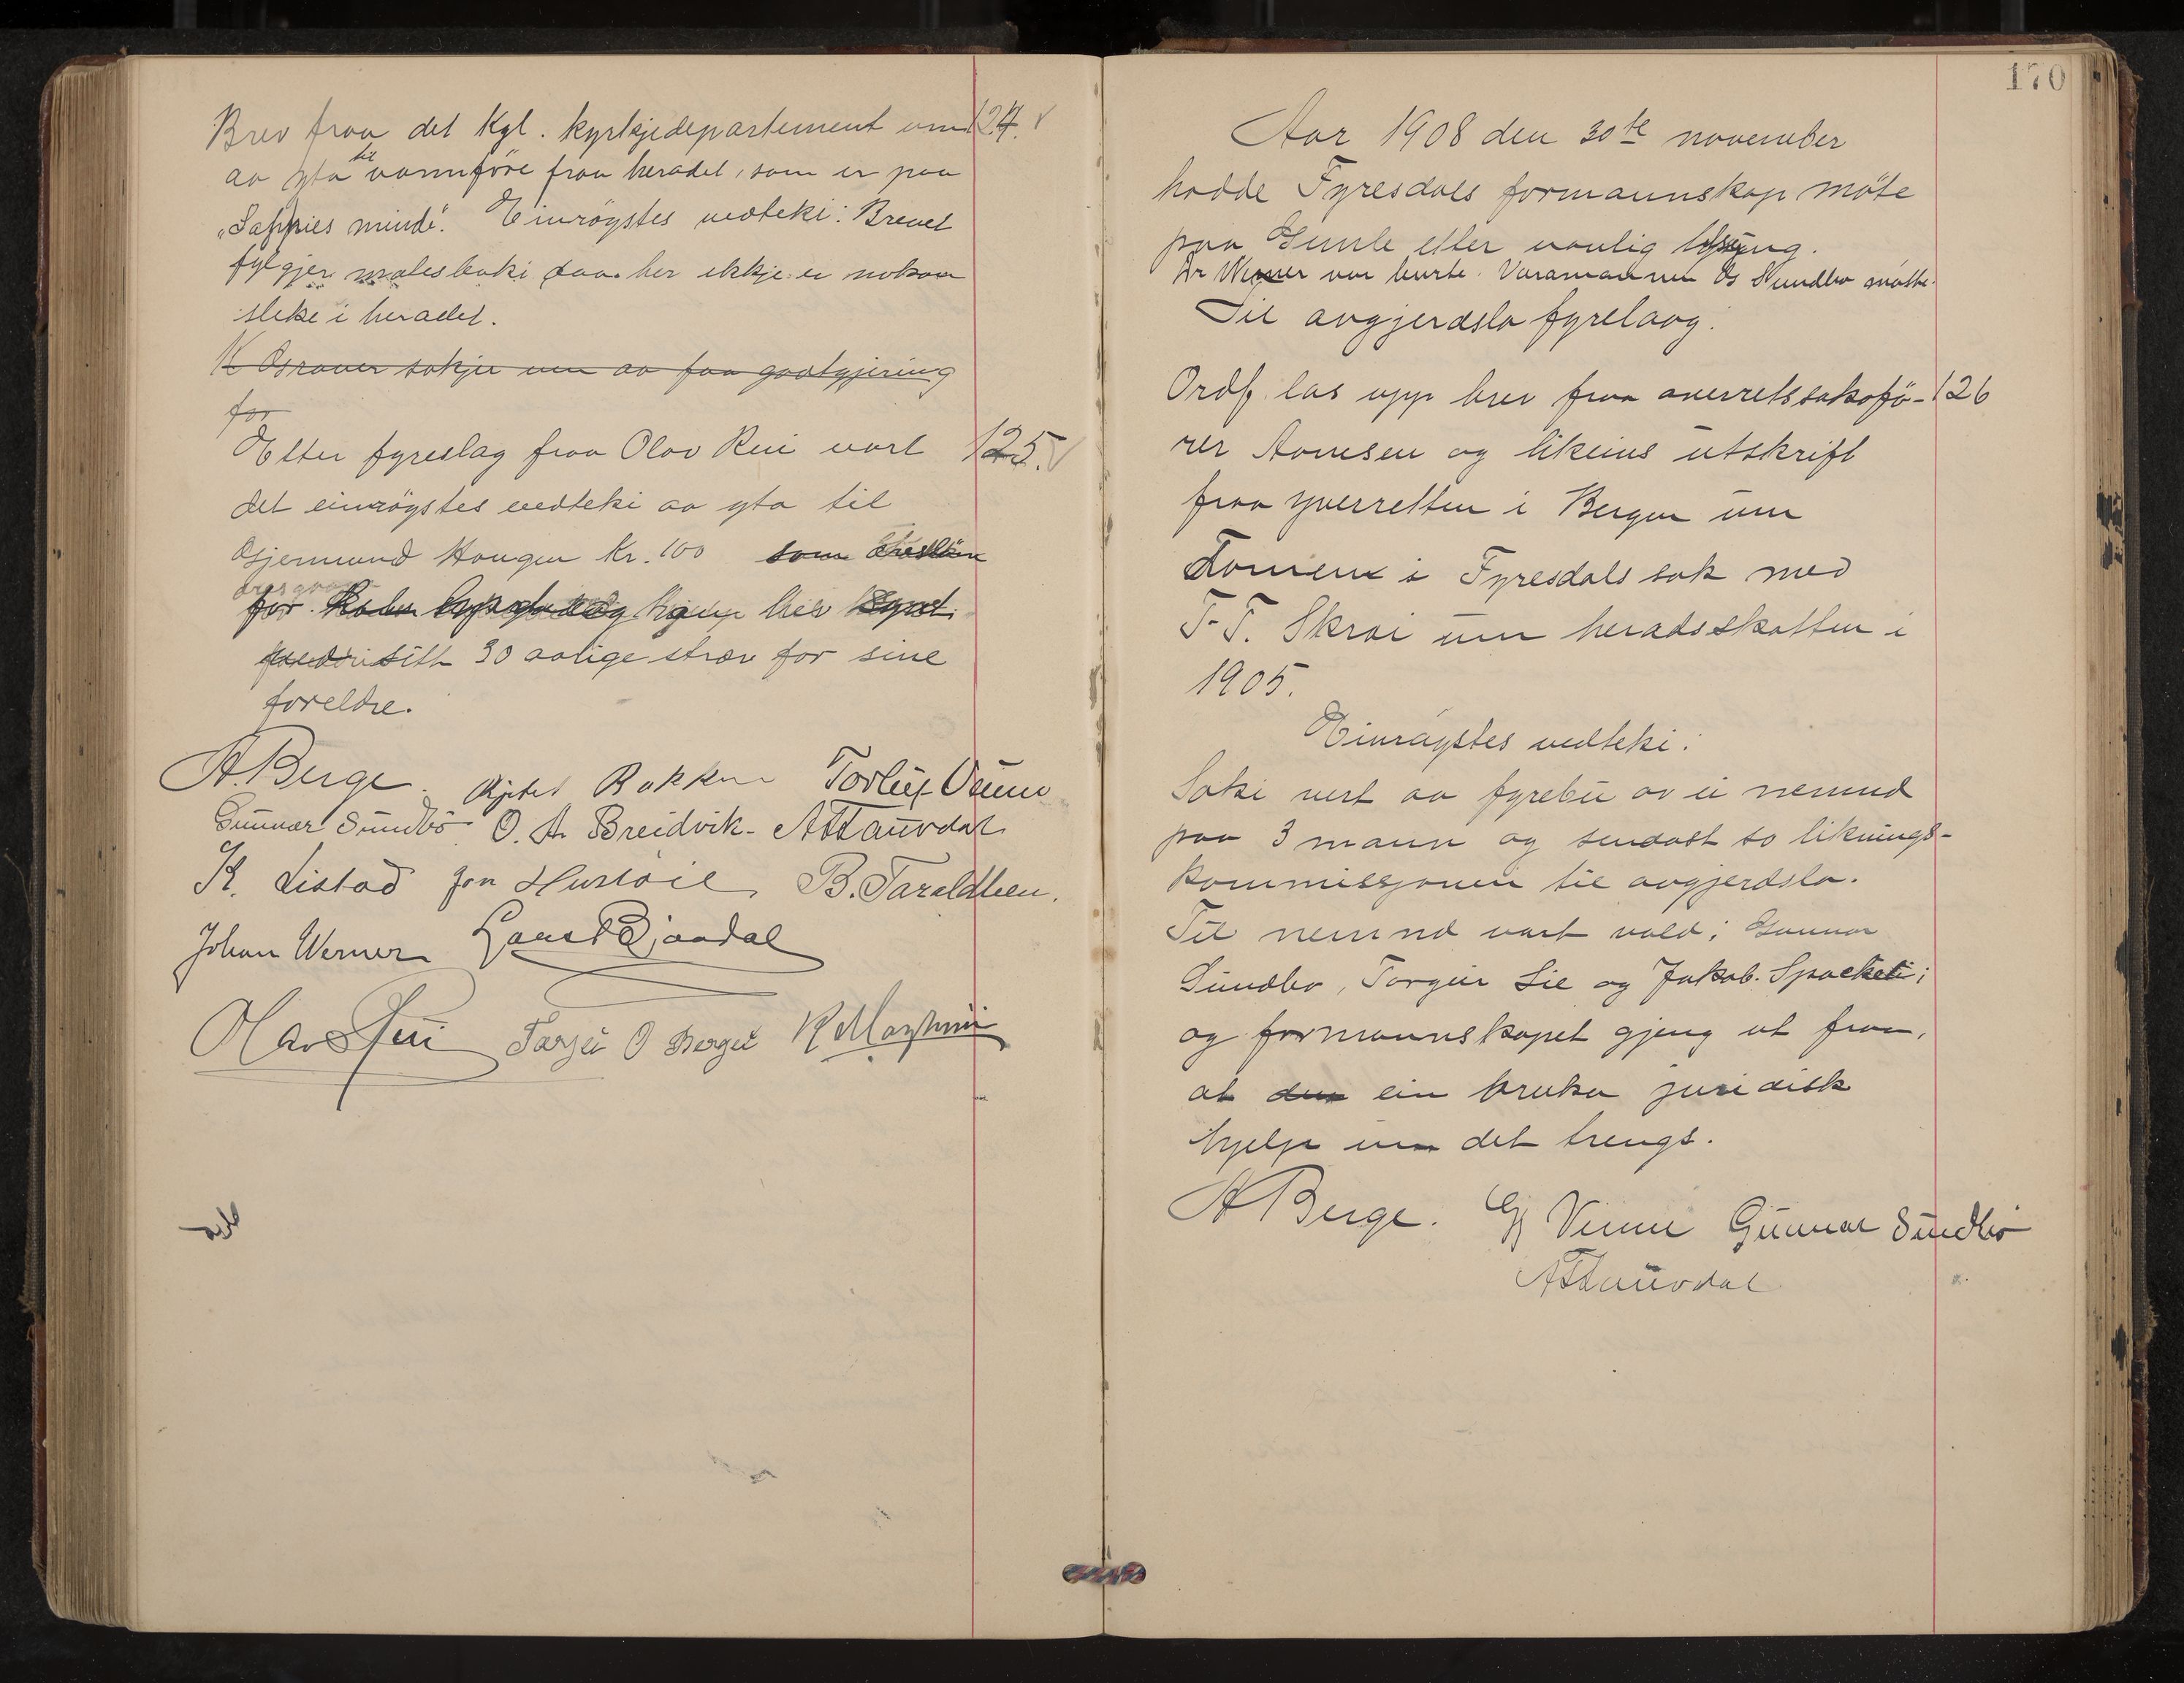 Brev fraa det Kgl. kyrkjedepartement um 124.
aa yta til vannføre fraa heradet, som er paa
"Saphies minde". Einrøystes vedteki: Brevet
fylgjer malet baki daa her ikkje er nokon
slike i heradet.
K Osraver søkjer um aa faa godtgjering
for
Etter fyreslag fraa Olav Rui vart 125.
det einrøystes vedteki aa yta til
Gjermund Haugen Kr. 100 som
for hev
sitt 30 aarige stræv for sine
foreldre.
A. Berge. Kjetel Bakken Torleif Veum
Gunnar Sundbö O. A. Breidvik. A T Lauvdal
K. Listad Jon Hustoil B. Taraldlien.
Johan Werner Laurs Bjaadal
Olav Rui Tarjei O Berge
170
Aar 1908 den 30te november
hadde Fyresdals formannskap möte
paa Gimle etter vanlig lysing.
Dr Werner var burte. Varamannen Gs Sundbø møtte.
Til avgjerdsla fyrelaag:
Ordf. las upp brev fraa overretssakofö- 126
rer Aamsen og likeins utskrift
fraa yverretten i Bergen um
Domen i Fyresdals sak med
T. T. Skrai um heradsskatten i
1905.
Einröystes vedteki:
Saki vert aa fyrebu av ei nemnd
paa 3 mann og sendast so liknings-
kommissjonen til avgjerdsla.
Til nemnd vart vald: Gunnar
Sundbø, Torgeir Lie og Jakob. Spockeli;
og formannskapet gjeng ut fraa,
at den ein bruker juridisk
hjelp um det trengs.
A Berge. Gj Veum Gunnar Sundbö
A T Lauvdal